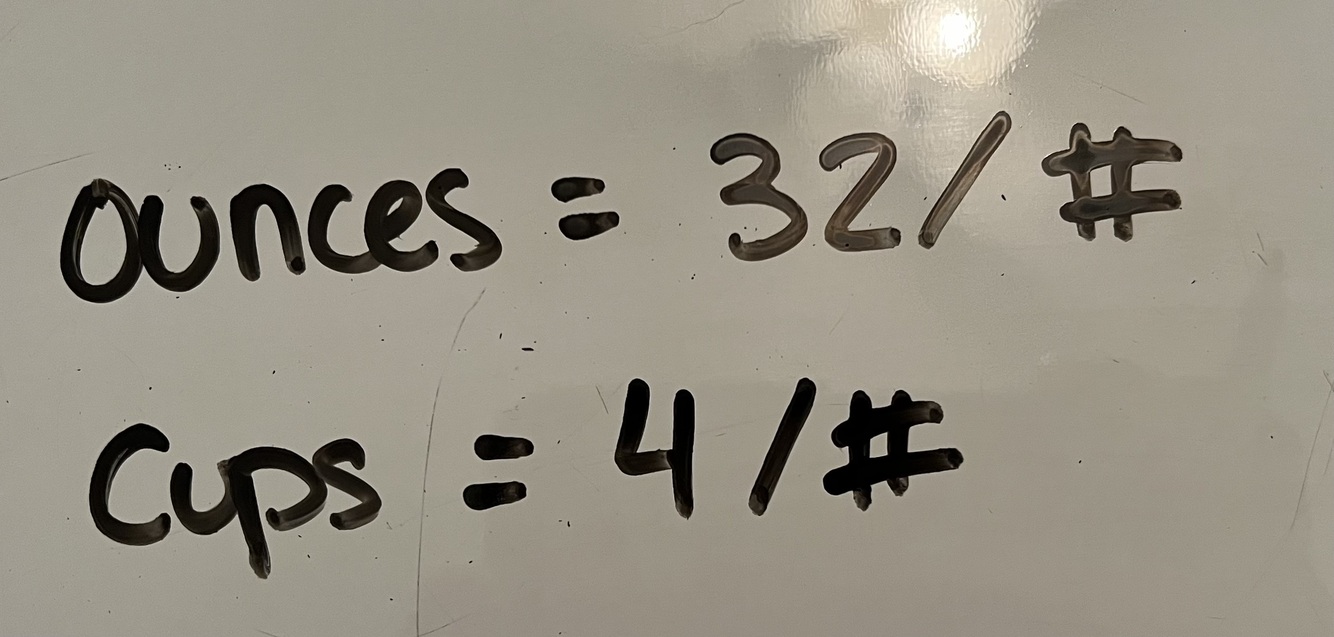 ounces = 32/#
Cups = 4/#